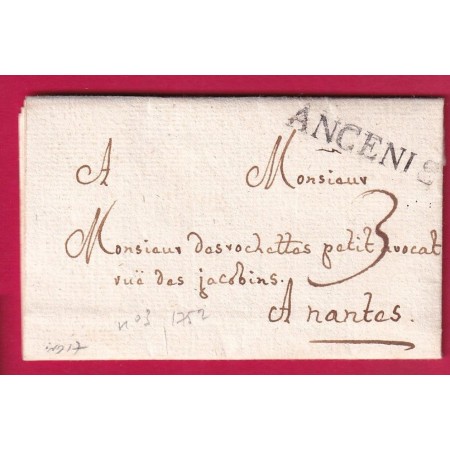 ANCENIS
A Monsieur
3
Monsieur desrochettes petit avocat
ruë des jacobins.
A nantes.
n°3 1752